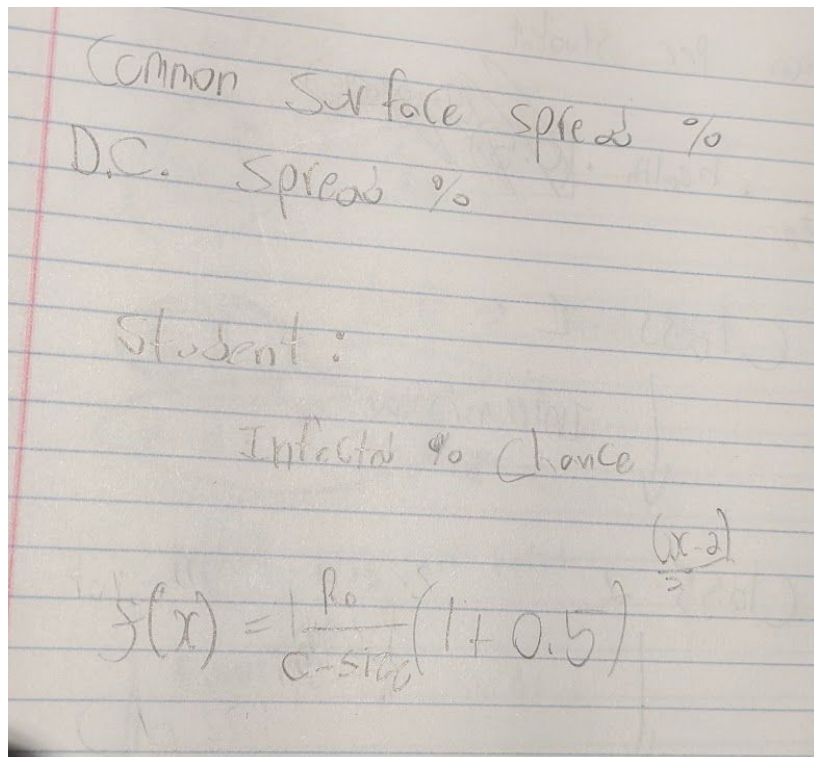 Common Surface spread %
D.C. Spread %
Student :
Infected % Chance
f(x) = R₀/c-size (1 + 0.5)^(x-2)